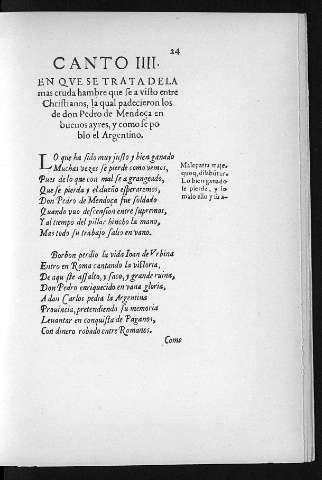 24
CANTO IIII.
EN QVE SE TRATA DE LA
mas cruda hambre que se a visto entre
Christianos, la qual padecieron los
de don Pedro de Mendoça en
buenos ayres, y como se po
blo el Argentino.
LO que ha sido muy justo y bien ganado
Muchas vezes se pierde como vemos,
Pues de lo que con mal se a grangeado,
Que se pierda y el dueño esperaremos,
Don Pedro de Mendoça fue soldado
Quando vuo descension entre supremos,
Y al tiempo del pillar hincho la mano,
Mas todo su trabajo salio en vano.
Male parta
Lo bien ganado
se pierde, y lo
malo ello y su a-
Borbon perdio la vida Ioan de Vrbina
Entro en Roma cantando la victoria,
De aqueste assalto, y saco, y grande ruina,
Don Pedro enriquecido en vana gloria,
A don Carlos pedia la Argentina
Prouincia, pretendiendo su memoria
Leuantar en conquista de Paganos,
Con dinero robado entre Romanos.
Como